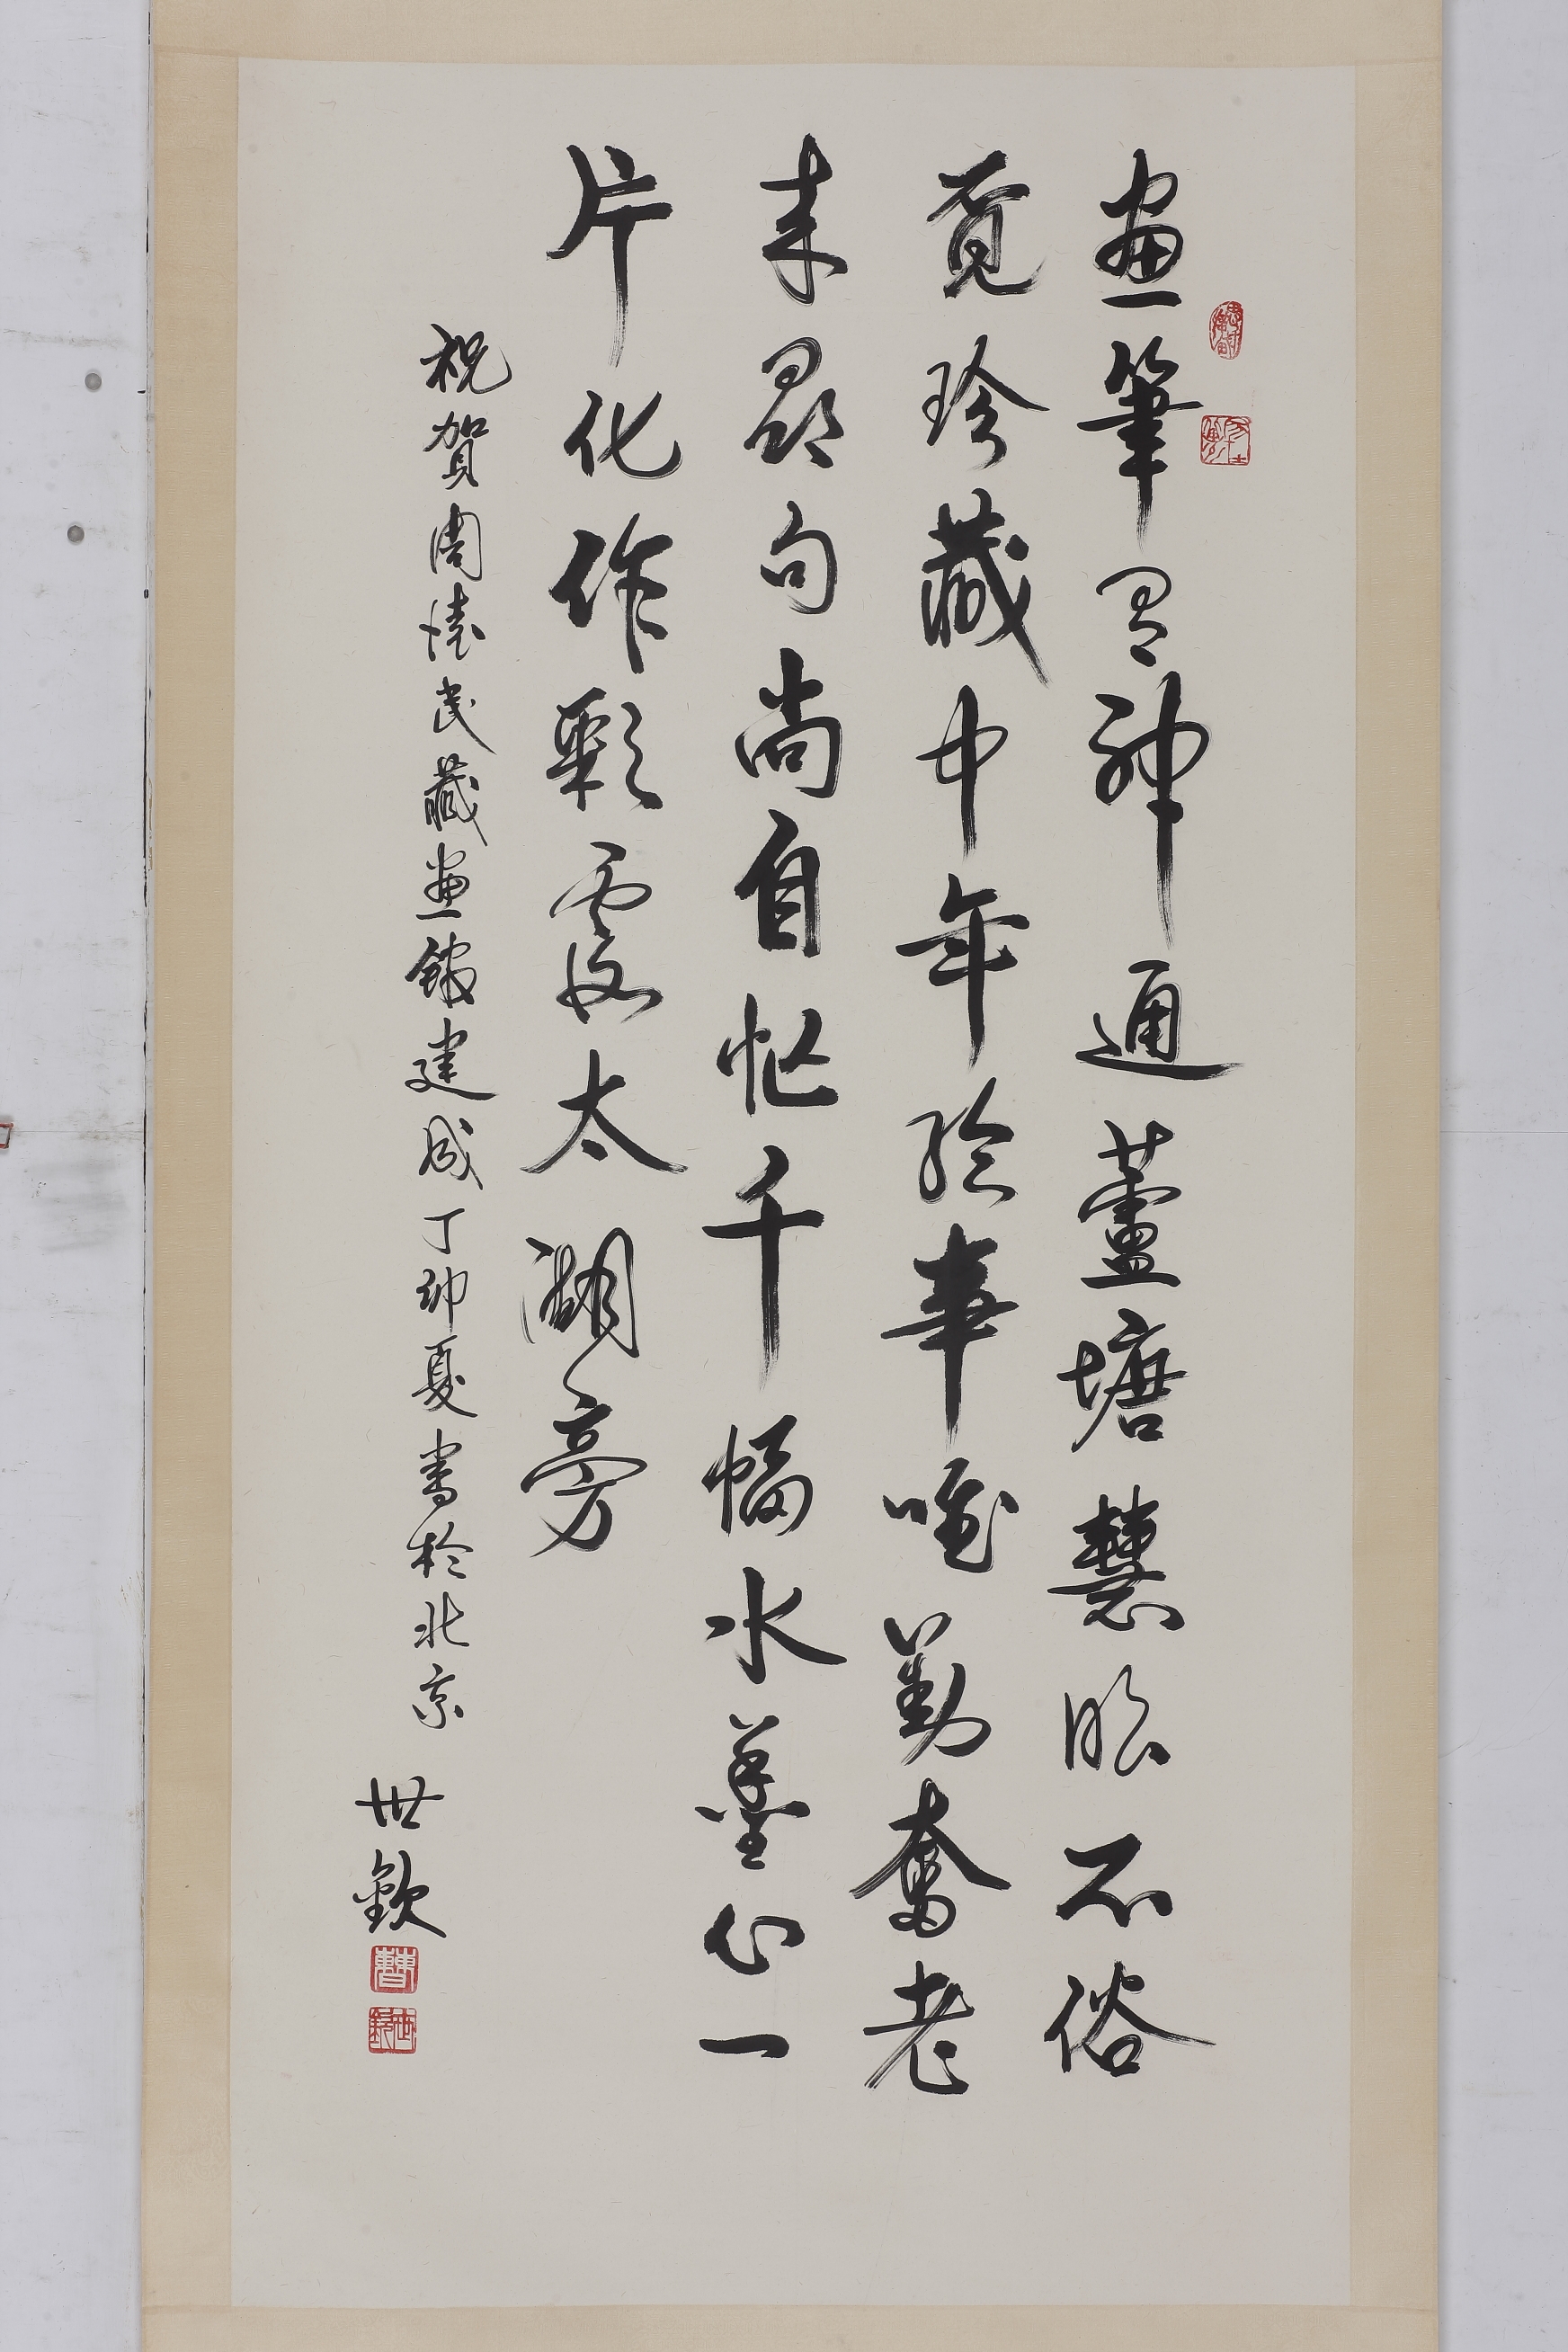 畫筆神通蘆塘慧眼不俗
覓珍藏中年繪事唯勤奮老
來句尚自忙千幅水墨心一
片化作彩霞太湖旁
祝賀周懷民藏畫館建成丁卯夏書於北京
世欽
曹
世欽